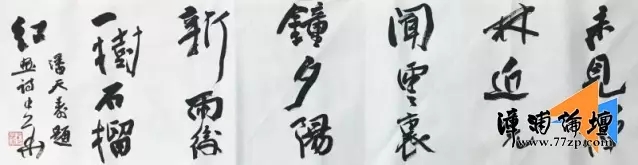 未見
林近
聞雲裏
鐘夕陽
新雨後
一樹石榴
紅
潘天壽題
画詩
漳浦論壇
www.77zp.com